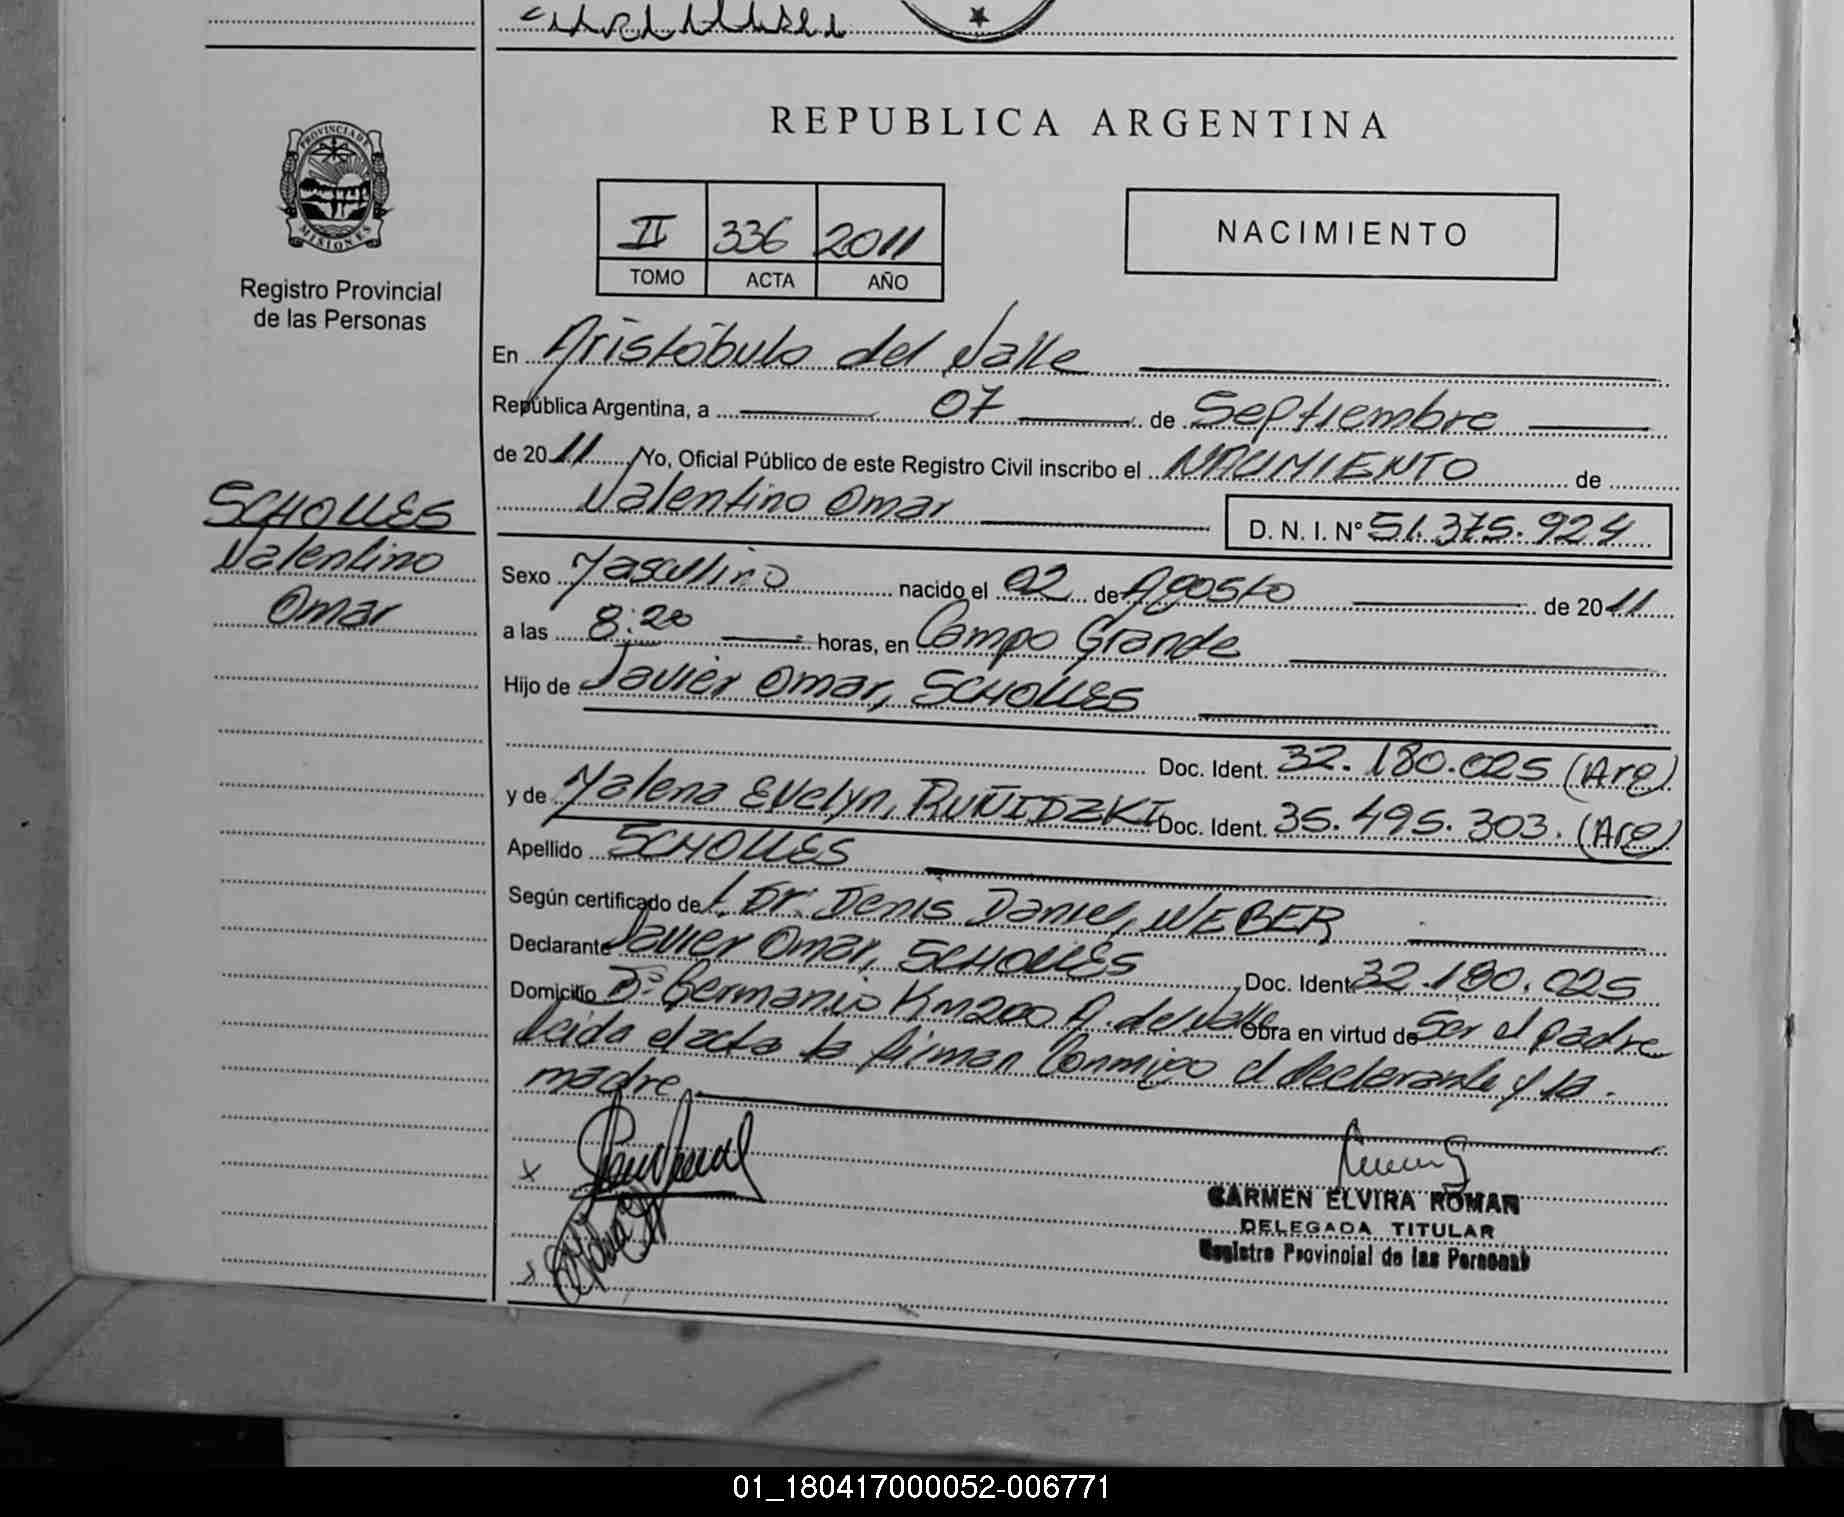 REPUBLICA ARGENTINA
PROVINCIA DE
MISIONES
Registro Provincial
de las Personas
II 336 2011
TOMO ACTA AÑO
NACIMIENTO
En Aristóbulo del Valle
República Argentina, a 07 de Septiembre
de 2011 Yo, Oficial Público de este Registro Civil inscribo el NACIMIENTO de
Valentino Omar
D. N. I. Nº 51.375.924
SCHOLLES
Valentino
Omar
Sexo Masculino nacido el 02 de Agosto de 2011
a las 8:20 horas, en Campo Grande
Hijo de Javier Omar, SCHOLLES
Doc. Ident. 32.180.025 (Arg)
y de Malena Evelyn, RUÑIDZKI Doc. Ident. 35.495.303. (Arg)
Apellido SCHOLLES
Según certificado de Dr. Denis Daniel, WEBER
Declarante Javier Omar, SCHOLLES Doc. Ident. 32.180.025
Domicilio Bº Germanio Km200 A. del Valle Obra en virtud de Ser el padre
Leida el acta la firman Conmigo el declarante y la
madre
CARMEN ELVIRA ROMAN
DELEGADA TITULAR
Registro Provincial de las Personas
01_180417000052-006771